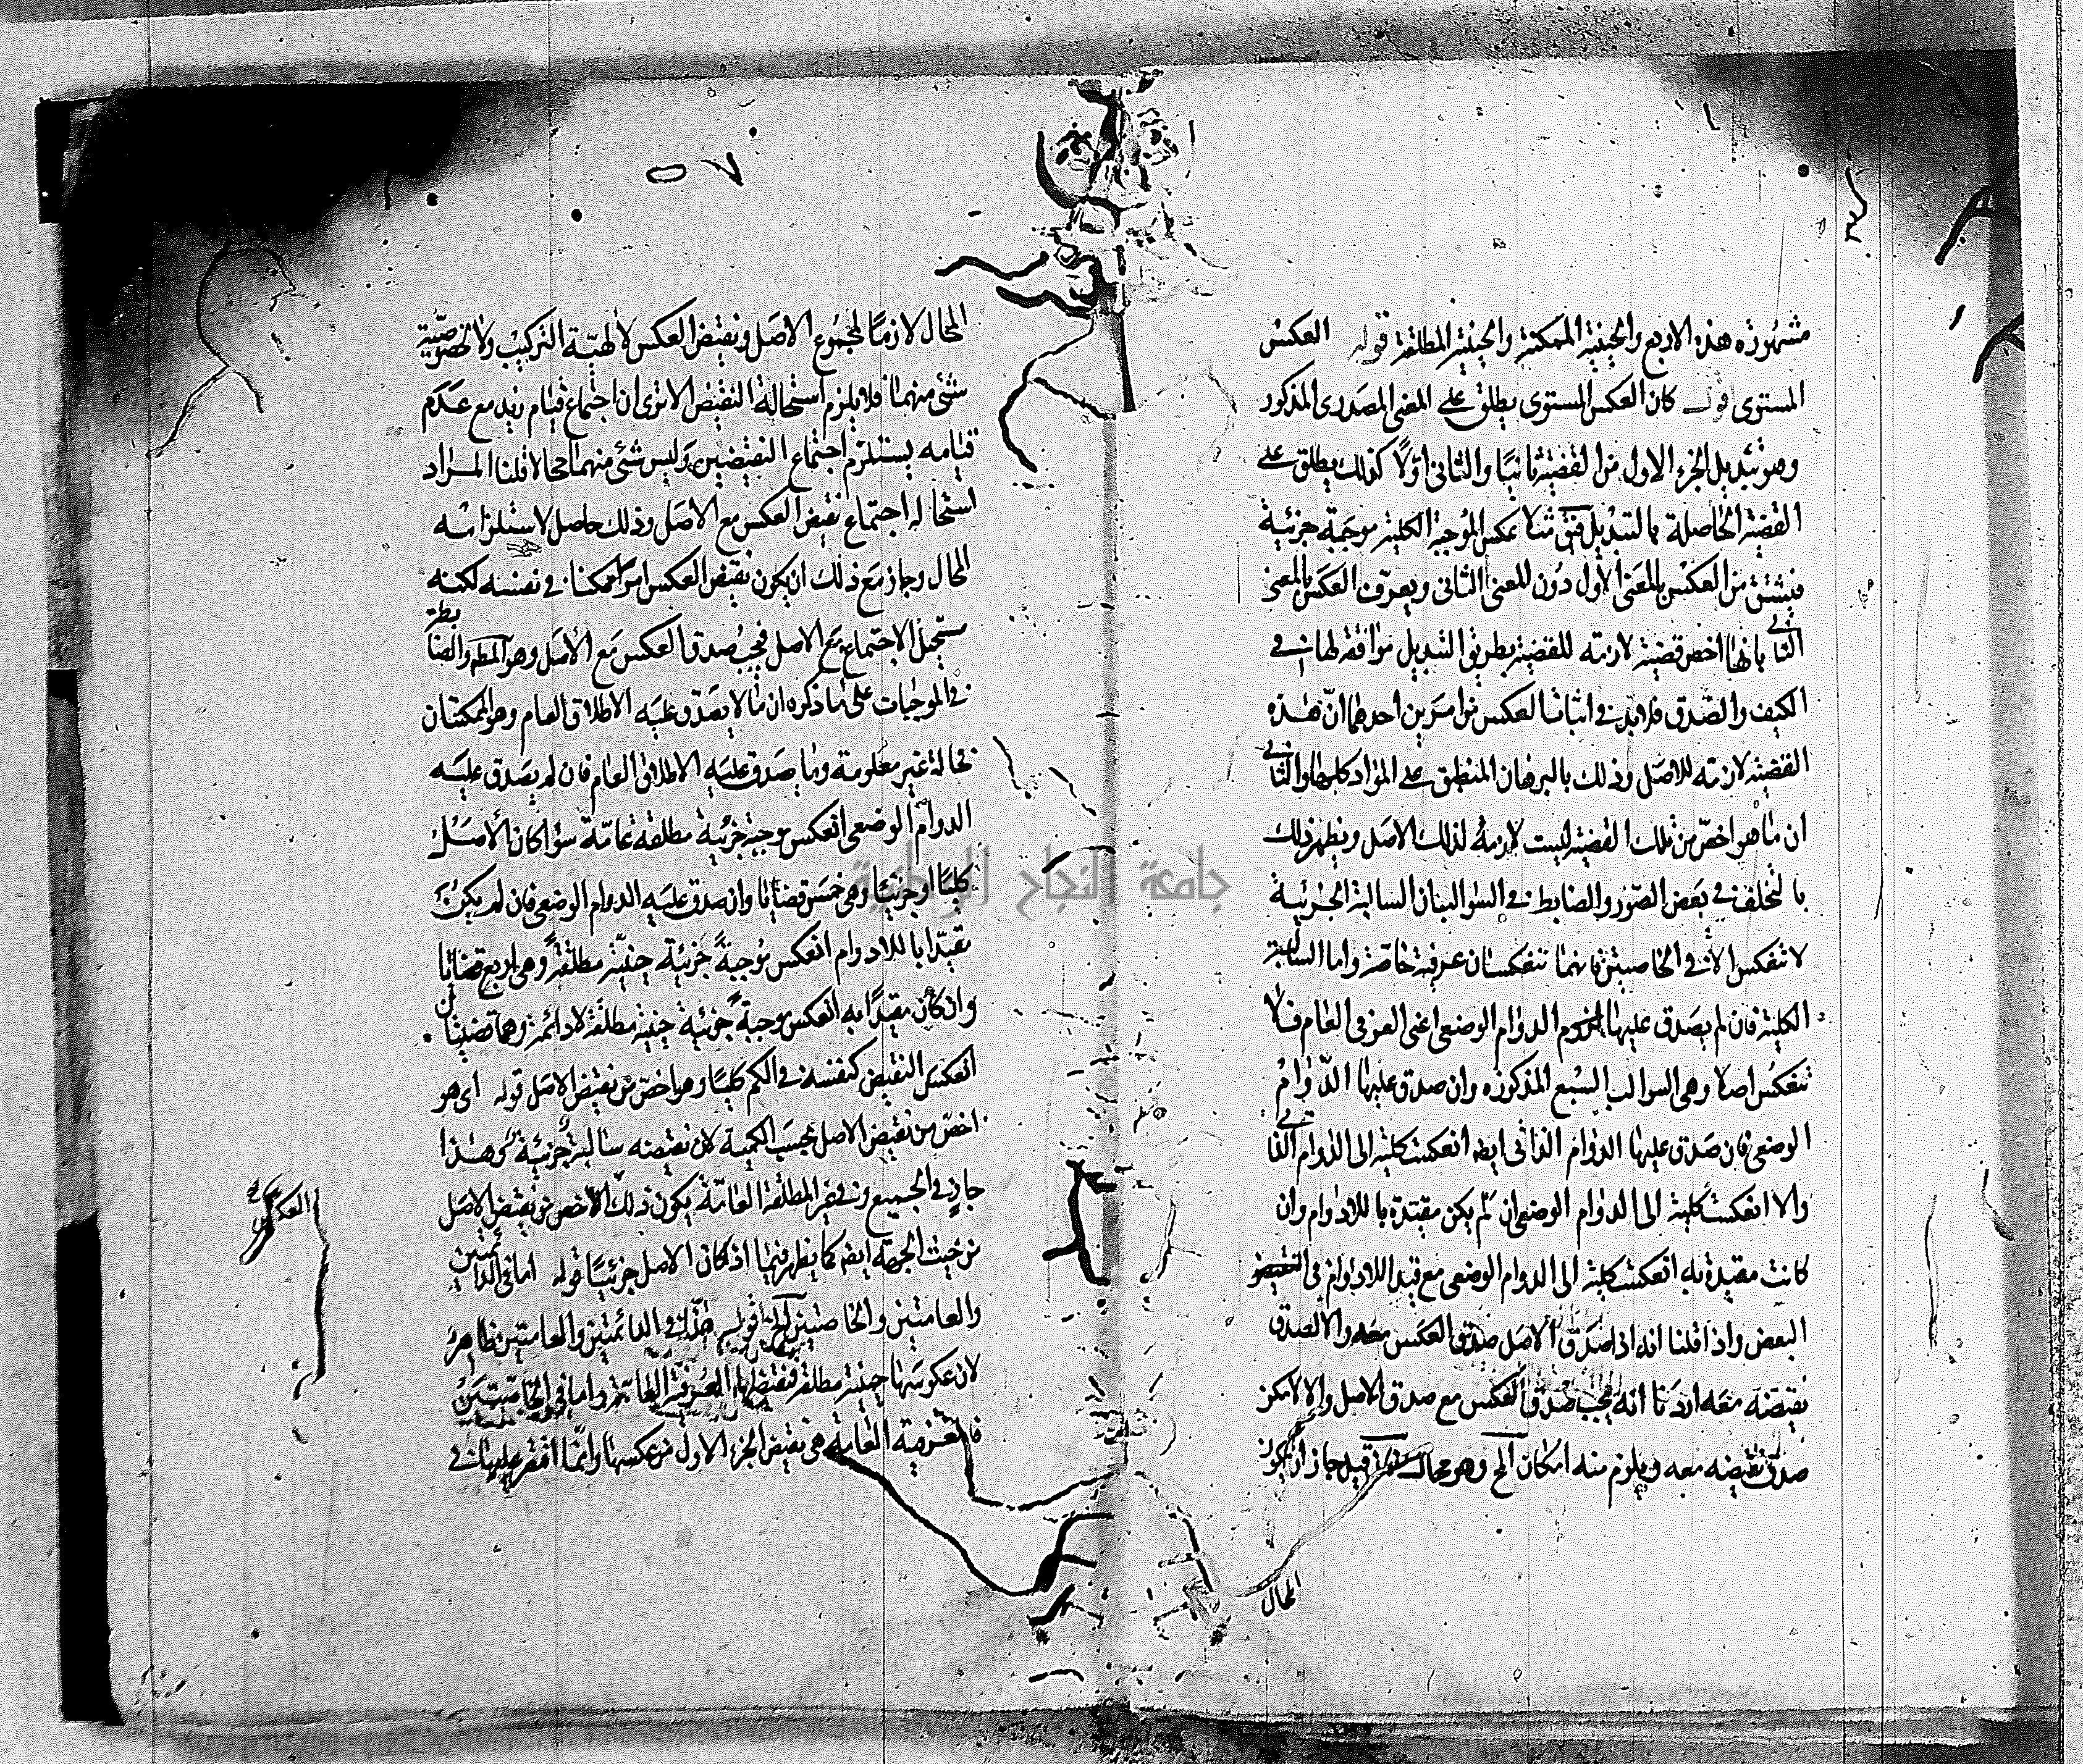 مشهورة هذه الاربع والحينية الممكنة والحينية المطلقة قوله العكس
المستوى قوله كان العكس المستوى يطلق على المعنى المصدرى المذكور
وهو تبديل الجزء الاول من القضية ثانيا والثانى اولا كذلك يطلق على
القضية الحاصلة بالتبديل مثلا عكس الموجبة الكلية موجبة جزئية
فيشتق من العكس بالمعنى الاول دون المعنى الثانى ويعرف العكس بالمعنى
الثانى بانها اخص قضية لازمة للقضية بطريق التبديل موافقة لها فى
الكيف والصدق فلابد فى اثبات العكس من امرين احدهما ان هذه
القضية لازمة للاصل وذلك بالبرهان المنطبق على المواد كلها والثانى
ان ما هو اخص من تلك القضية ليست لازمة لذلك الاصل ويظهر ذلك
بالتخلف فى بعض الصور والضابط فى السوالب ان السالبة الجزئية
لا تنعكس الا فى الخاصيتين فانهما تنعكسان عرفية خاصة واما السالبة
الكلية فان لم يصدق عليها الدوام الوضعى اعنى العرفى العام فلا
تنعكس اصلا وهى السوالب السبع المذكورة وان صدق عليها الدوام
الوضعى فان صدق عليها الدوام الذاتى ايضا انعكست كلية الى الدوام الذاتى
والا انعكست كلية الى الدوام الوضعى ان لم يكن مقيدة باللادوام وان
كانت مقيدة به انعكست كلية الى الدوام الوضعى مع قيد اللادوام فى
البعض واذا قلنا انه اذا صدق الاصل صدق العكس معه والا لصدق
نقيضه معه اردنا انه يجب صدق العكس مع صدق الاصل والا لامكن
صدق نقيضه معه ويلزم منه امكان المح وهو محال قيل جاز ان يكون
المحال
٥٧
المحال لازما لمجموع الاصل ونقيض العكس لا لهيئة التركيب ولا لخصوصية
شئ منهما فلا يلزم استحالة النقيض الا ترى ان اجتماع قيام زيد مع عدم
قيامه يستلزم اجتماع النقيضين وليس شئ منهما محالا قلنا المراد
استحالة اجتماع نقيض العكس مع الاصل وذلك حاصل لاستلزامه
المحال وجاز مع ذلك ان يكون نقيض العكس امرا ممكنا فى نفسه لكنه
مستحيل الاجتماع مع الاصل فيجب صدق العكس مع الاصل وهو المط والضابطة
فى الموجبات على ما ذكره ان ما لا يصدق عليه الاطلاق العام وهو الممكنتان
فحاله غير معلومة وما صدق عليه الاطلاق العام فان لم يصدق عليه
الدوام الوضعى انعكس موجبة جزئية مطلقة عامة سواء كان الاصل
كليا او جزئيا وهى خمس قضايا وان صدق عليه الدوام الوضعى فان لم يكن
مقيدا باللادوام انعكس موجبة جزئية حينية مطلقة وهى اربع قضايا
وان كان مقيدا به انعكس موجبة جزئية حينية مطلقة لا دائمة وهما قضيتان
انعكس النقيض كنفسه فى الكم كليا وهو اخص من نقيض الاصل قوله اى هو
اخص من نقيض الاصل بحسب الكمية لان نقيضه سالبة جزئية وهذا
جار فى الجميع وفى غير المطلقة العامة يكون ذلك الاخص من نقيض الاصل
من حيث الجهة ايضا كما يظهر فيما اذا كان الاصل جزئيا قوله اما فى الدائمتين
والعامتين والخاصتين الخ قوله هذا فى الدائمتين والعامتين ظاهر
لان عكوسها حينية مطلقة فنقيضها العرفية العامة واما فى الخاصتين
فالعرفية العامة هى نقيض الجزء الاول من عكسها وانما اقتصر عليها فى
العكس
جامعة النجاح الوطنية